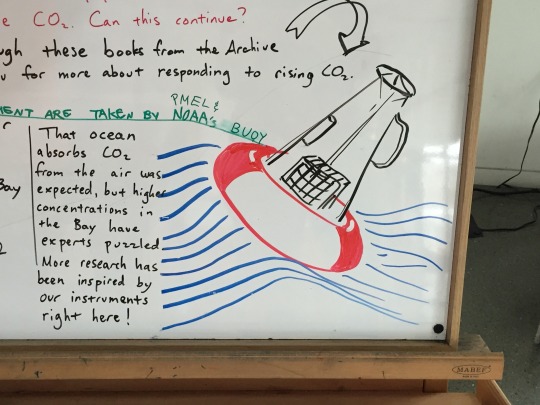 e CO₂. Can this continue?
ugh these books from the Archive
u for more about responding to rising CO₂.
MENT ARE TAKEN BY PMEL & NOAA's BUOY
r
Bay
2
That ocean
absorbs CO₂
from the air was
expected, but higher
concentrations in
the Bay have
experts puzzled
More research has
been inspired by
our instruments
right here!
MABEF